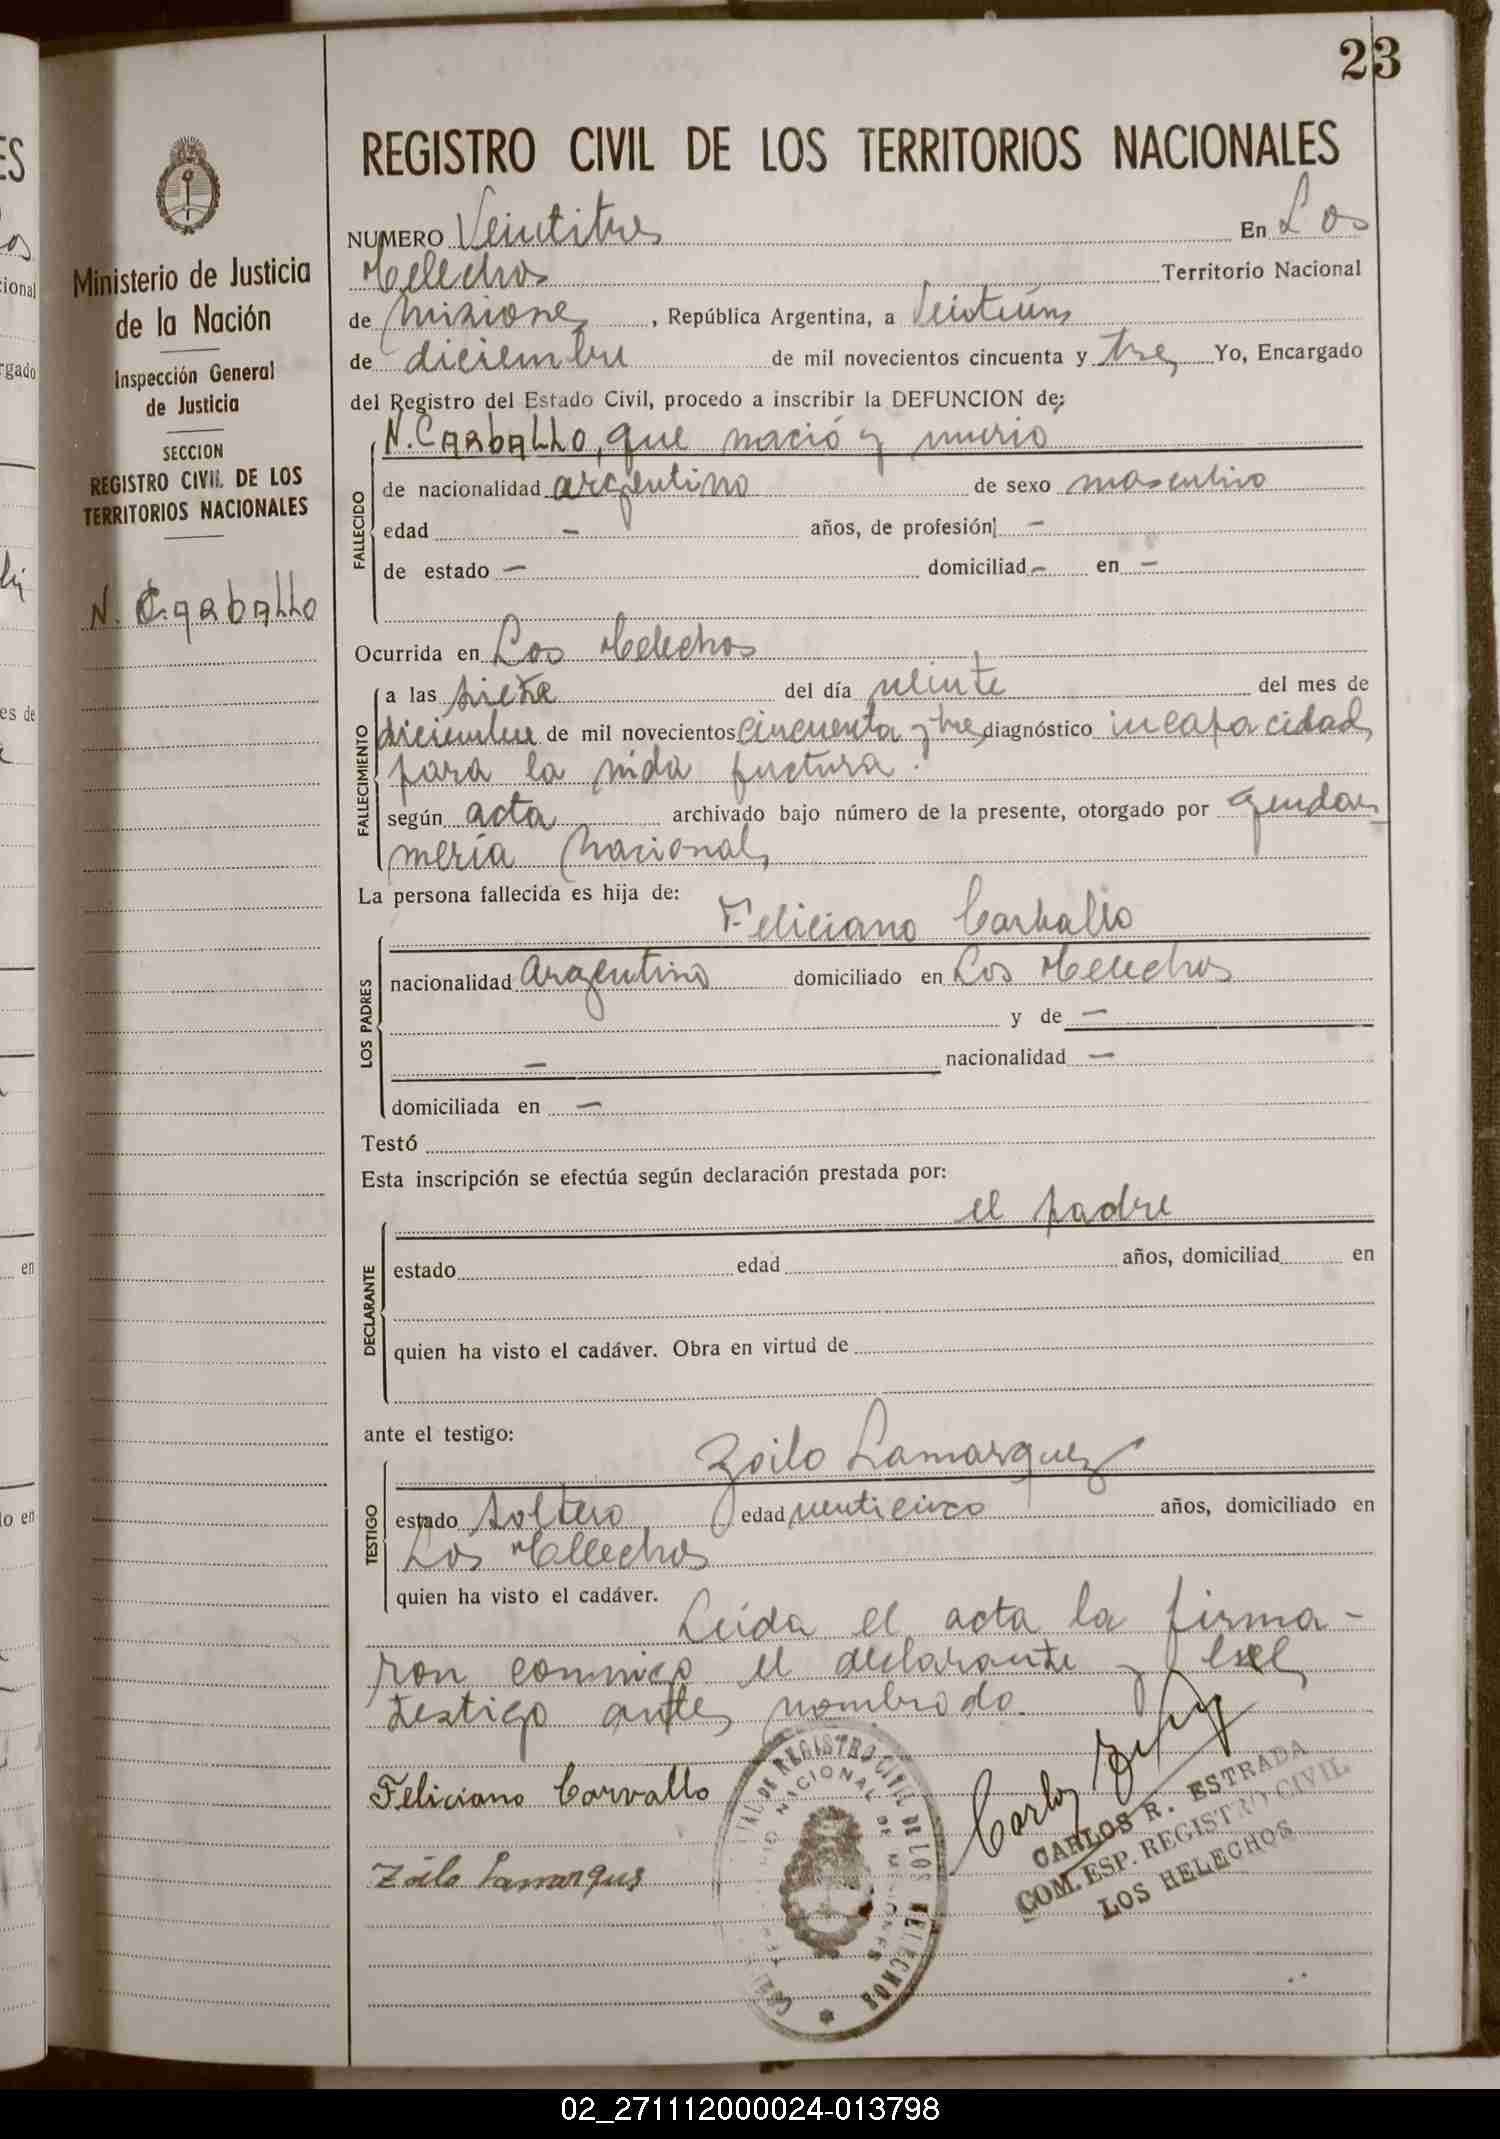 23
REGISTRO CIVIL DE LOS TERRITORIOS NACIONALES
Ministerio de Justicia
de la Nación
Inspección General
de Justicia
SECCION
REGISTRO CIVIL DE LOS
TERRITORIOS NACIONALES
N. Carballo
NUMERO Veintitres En Los
Helechos Territorio Nacional
de Misiones, República Argentina, a Veintiún
de diciembre de mil novecientos cincuenta y tres Yo, Encargado
del Registro del Estado Civil, procedo a inscribir la DEFUNCION de:
N. CARbALLO, que nació y murió
FALLECIDO
de nacionalidad argentino de sexo masculino
edad — años, de profesión —
de estado — domiciliad — en —
Ocurrida en Los Helechos
FALLECIMIENTO
a las siete del día veinte del mes de
diciembre de mil novecientos cincuenta y tres diagnóstico incapacidad
para la vida fuctura.
según acta archivado bajo número de la presente, otorgado por gendar
mería Nacional
La persona fallecida es hija de:
Feliciano Carballo
LOS PADRES
nacionalidad argentino domiciliado en Los Helechos
y de —
— nacionalidad —
domiciliada en —
Testó
Esta inscripción se efectúa según declaración prestada por:
el padre
DECLARANTE
estado edad años, domiciliad en
quien ha visto el cadáver. Obra en virtud de
ante el testigo:
Zoilo Lamarquez
TESTIGO
estado soltero edad venticinco años, domiciliado en
Los Helechos
quien ha visto el cadáver.
Leída el acta la firma-
ron conmigo el declarante y el
testigo antes nombrado.
Feliciano Carvallo
Zoilo Lamarques
Carlos
CARLOS R. ESTRADA
COM. ESP. REGISTRO CIVIL
LOS HELECHOS
DE REGISTRO CIVIL DE LOS HELECHOS
NACIONAL DE MISIONES
02_271112000024-013798